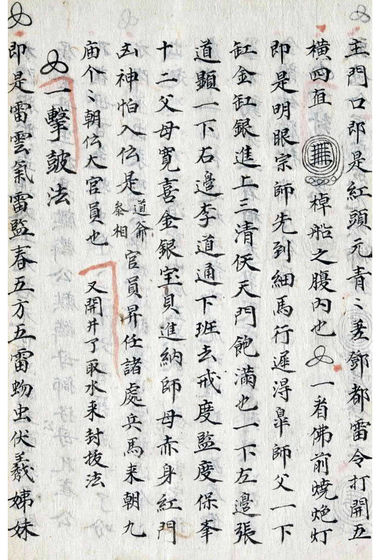 主門口即是紅頭元青〻差鄧都雷令打開五
橫四直 棹船之腹內也 一者佛前燒炮灯
即是明眼宗師先到細馬行遲淂皐師父一下
缸金缸銀進上三清仸天門飽滿也一下左邊張
道顯一下右邊李道通下班去戒度監度保峯
十二父母寬喜金銀宝貝進納師母赤身紅門
凶神怕入伝是道爺叅相官員昇任諸處兵馬来朝九
庙个〻朝伝大官員也 又開井了取水来封拔法
一擊皷法
即是雷雲氣雷監春五方五雷蚴虫伏羲姊妹